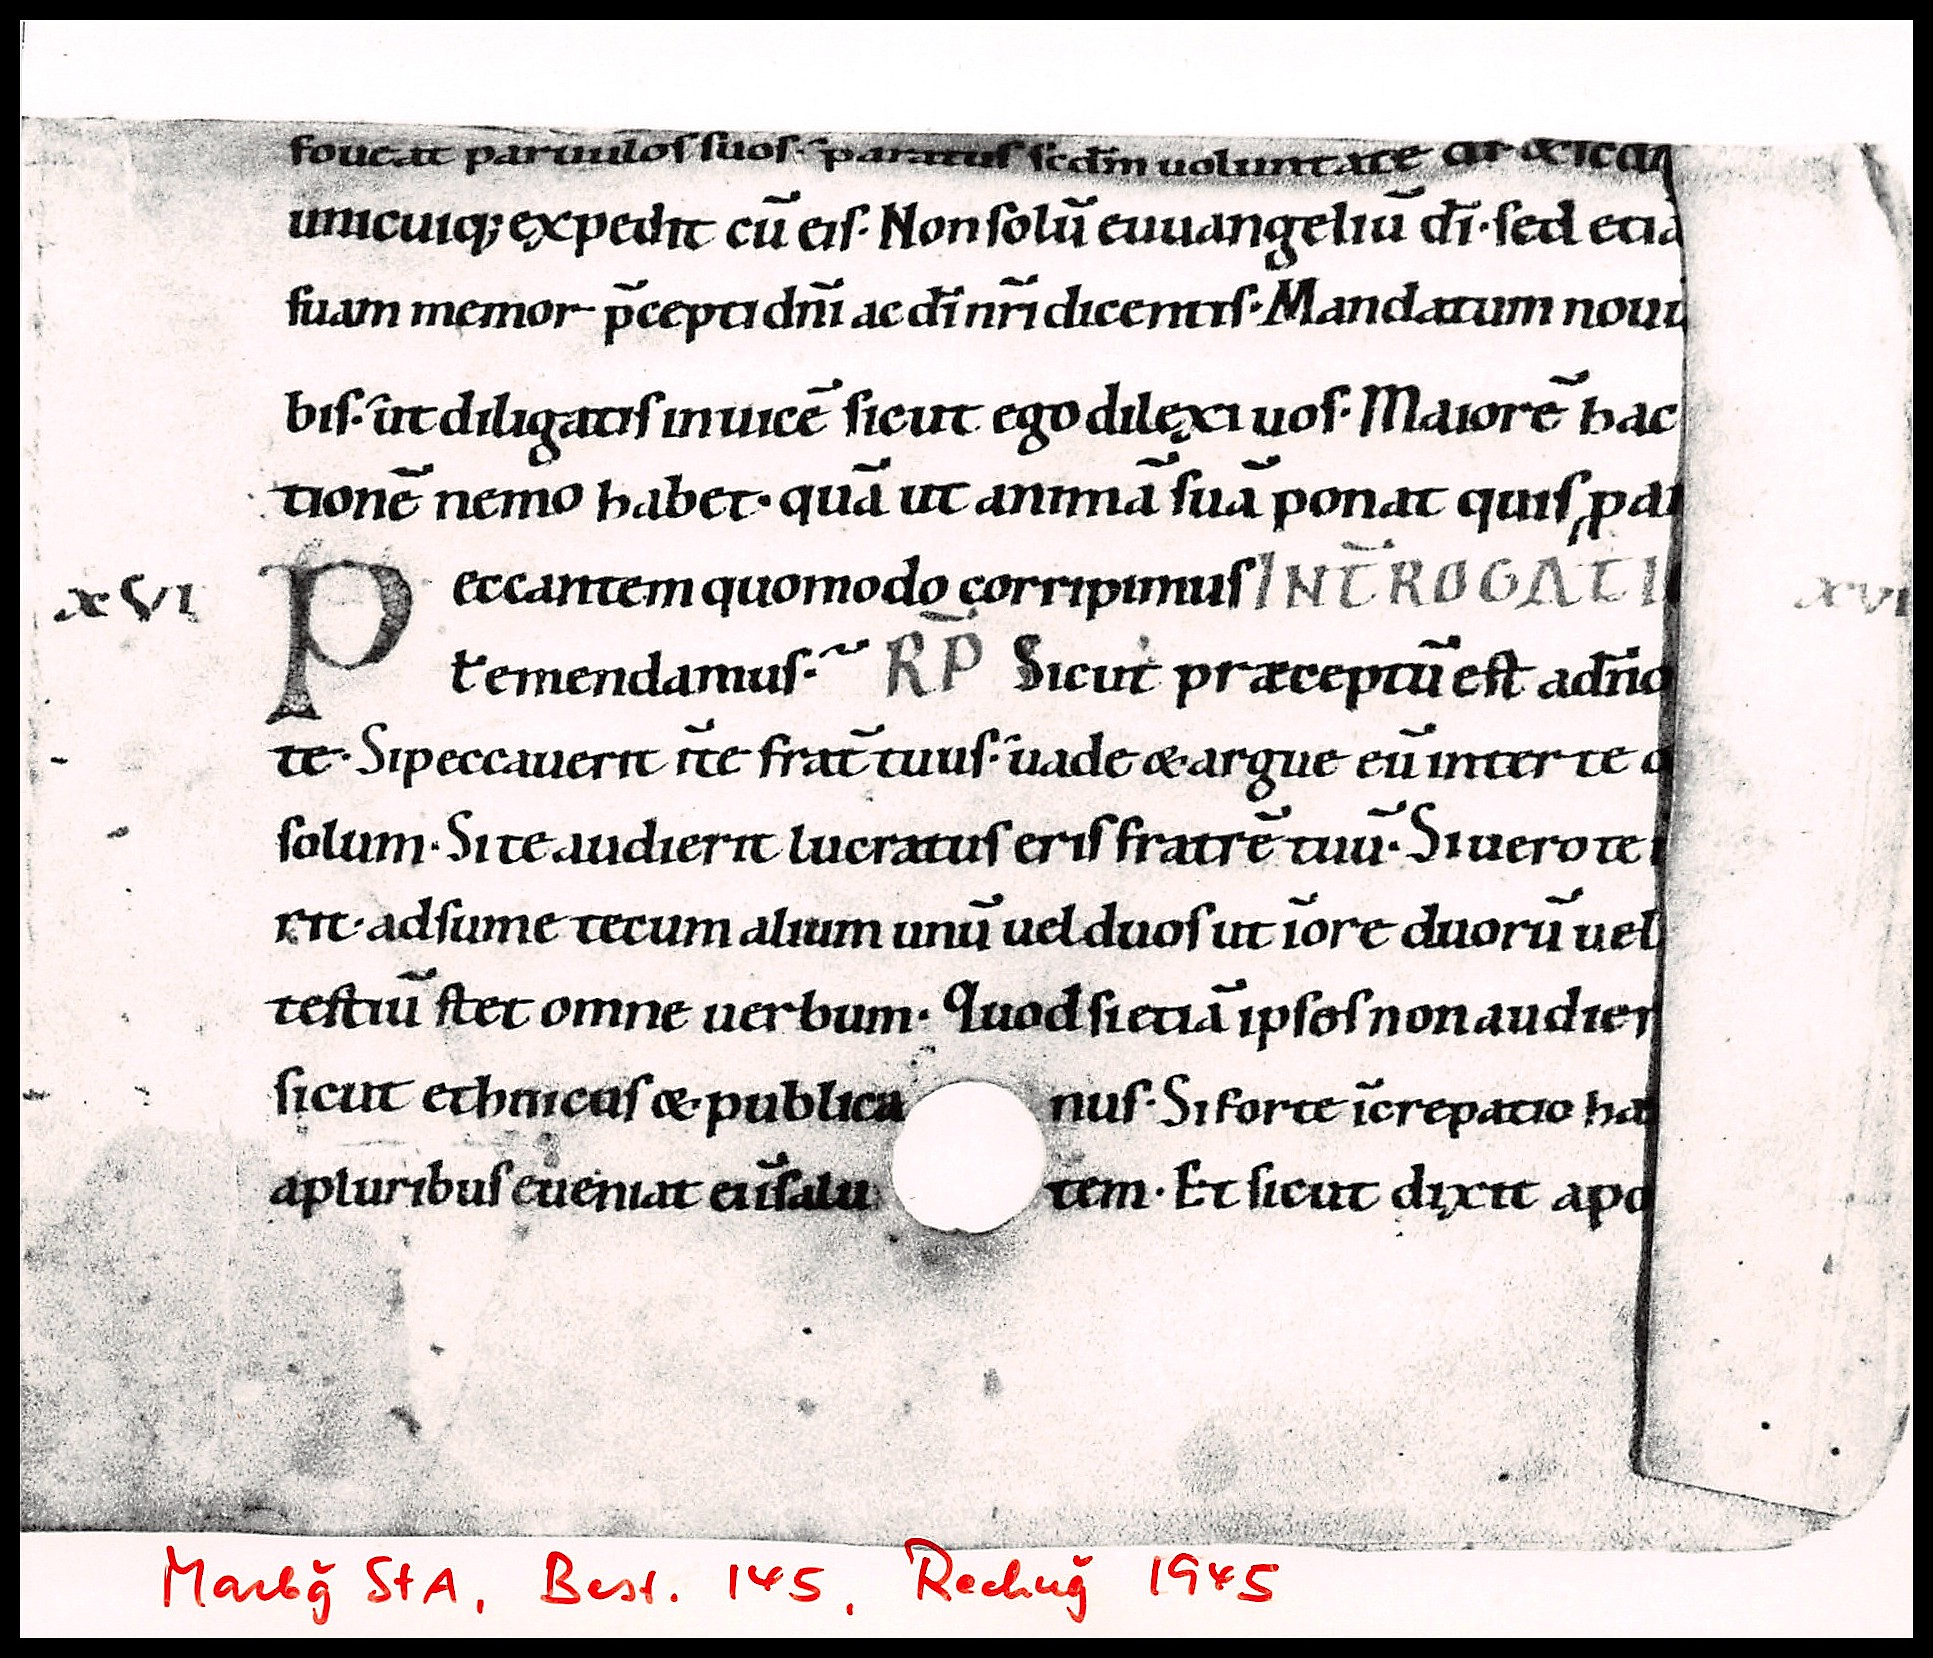 foueat paruulos suos· paratus scdm uoluntate
unicuiq; expedit cū eis· Non solū euuangeliū dī· sed etiā
suam memor p̄cepti dn̄i ac dī nr̄i dicentis· Mandatum noui
bis· ut diligatis inuicē sicut ego dilęxi uos· Maiorē hac
tionē nemo habet· quā ut animā suā ponat quis
xvi Peccantem quomodo corripimus INT̄ROGATI xvi
t̄ emendamus· RP̄ Sicut præceptū est a dn̄o
te· Si peccauerit īte frat̄ tuus· uade & argue eū inter te
solum· Si te audierit lucratus eris fratrē tuū· Si uero te
rit· adsume tecum alium unū uel duos ut īore duorū uel
testiū stet omne uerbum· Quod si etiā ipsos non audier
sicut ethnicus & publicanus· Si forte īcrepatio ha
a pluribus eueniat ei īsalutem· Et sicut dixit apo
Marbg̃ StA, Best. 145, Rechng̃ 1945